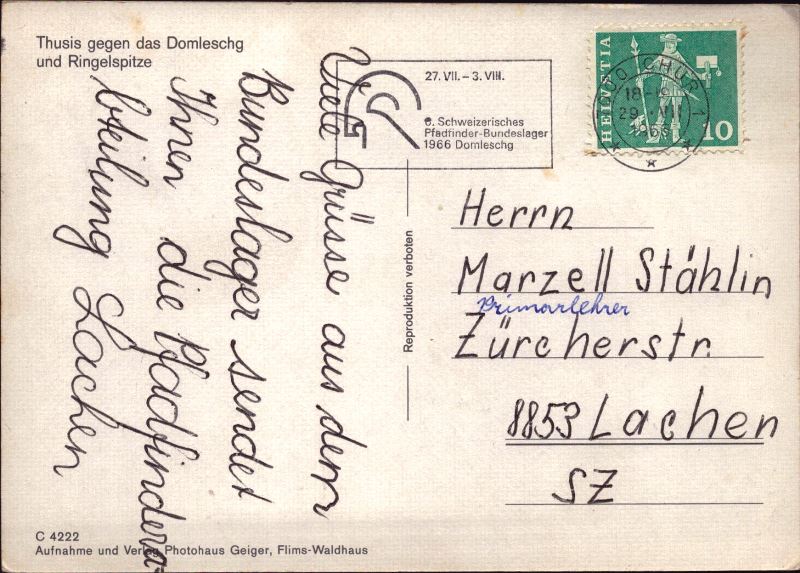 Thusis gegen das Domleschg
und Ringelspitze
27. VII. – 3. VIII.
6. Schweizerisches
Pfadfinder-Bundeslager
1966 Domleschg
HELVETIA
10
CHUR 1
18-
29. VII
1966
Viele Grüsse aus dem
Bundeslager sendet
Ihnen die Pfadfindera-
bteilung Lachen
Reproduktion verboten
Herrn
Marzell Stählin
Primarlehrer
Zürcherstr.
8853 Lachen
SZ
C 4222
Aufnahme und Verlag Photohaus Geiger, Flims-Waldhaus